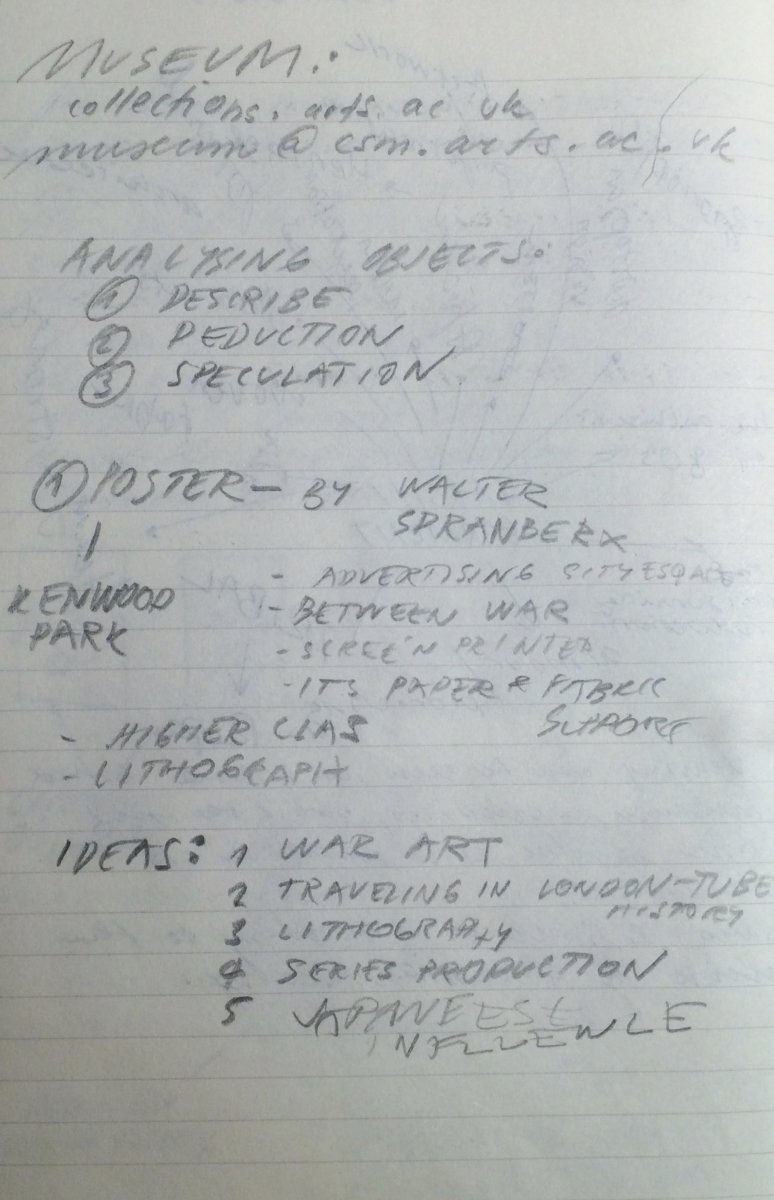 MUSEUM:
collections. arts. ac uk
museum @ csm. arts. ac. uk
ANALYSING OBJECTS:
① DESCRIBE
② DEDUCTION
③ SPECULATION
① POSTER — BY WALTER
SPRANBERX
KENWOOD
PARK
- ADVERTISING
- BETWEEN WAR
- SCREE'N PRINTED
- ITS PAPER & FABRIC
SUPPORT
- HIGHER CLAS
- LITHOGRAPH
IDEAS: 1 WAR ART
2 TRAVELING IN LONDON-TUBE
HISTORY
3 LITHOGRAPHY
4 SERIES PRODUCTION
5 JAPANEESE
INFLUENCE